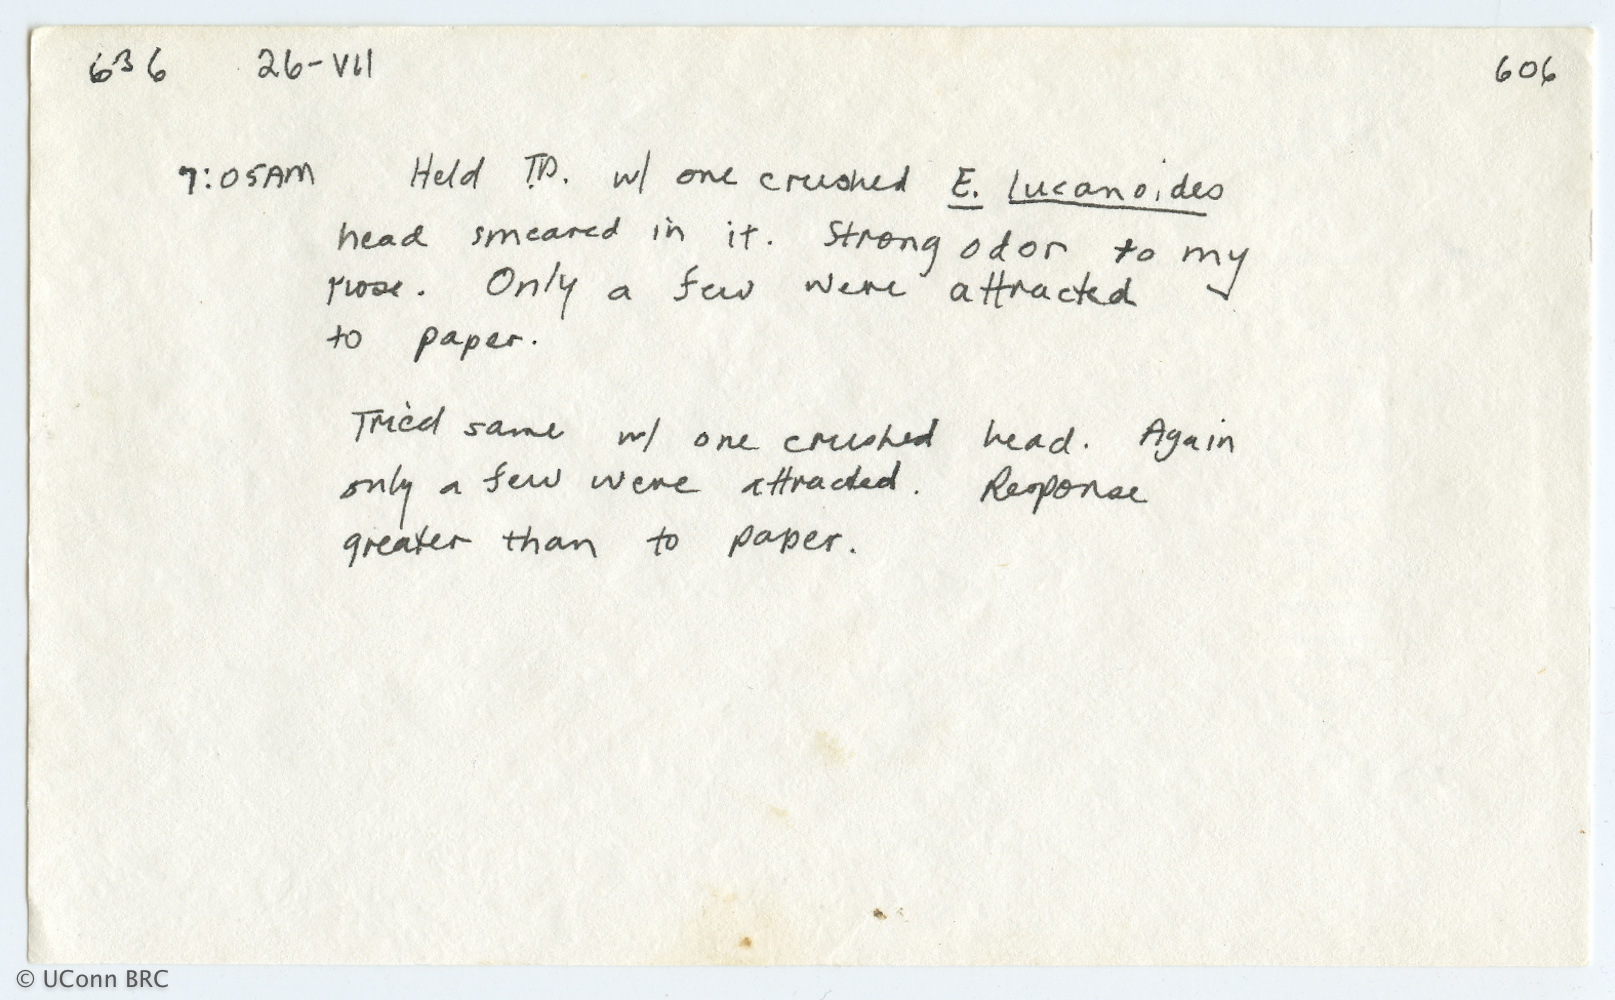 636 26-VII 606
7:05AM Held T.P. w/ one crushed E. Lucanoides
head smeared in it. Strong odor to my
nose. Only a few were attracted
to paper.
Tried same w/ one crushed head. Again
only a few were attracted. Response
greater than to paper.
© UConn BRC